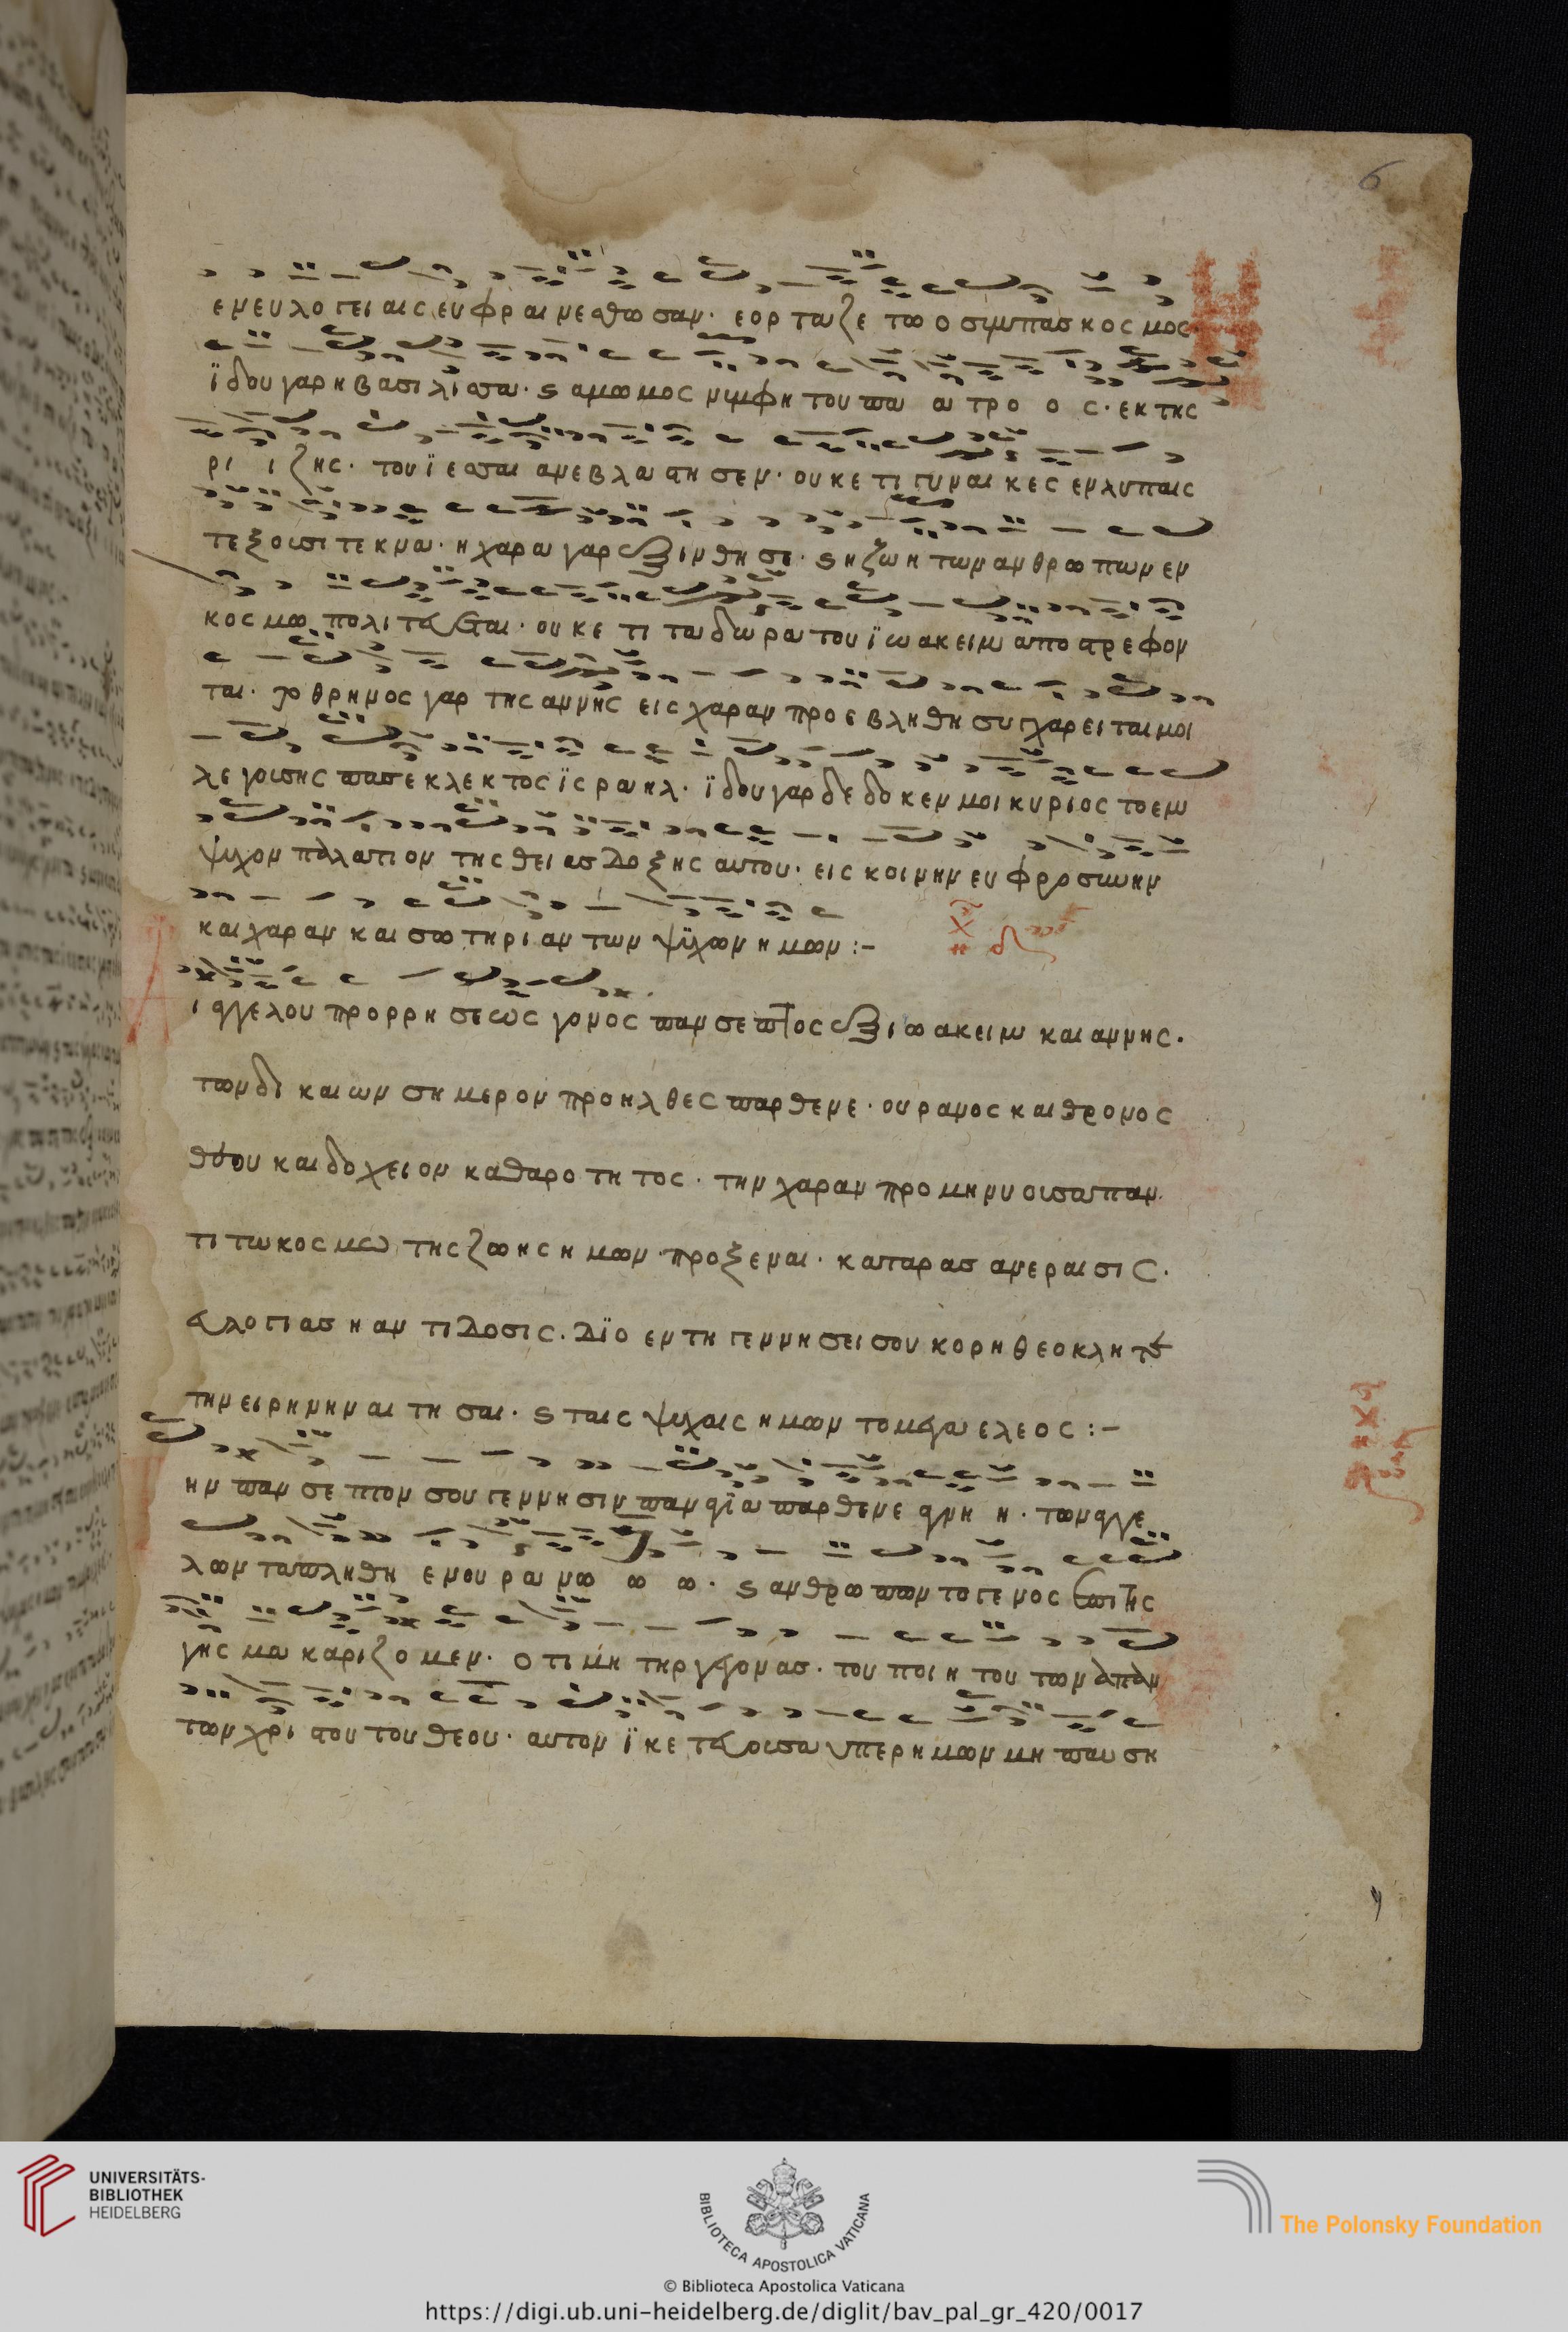 6
εν ευλογειαις ευφραινεσθωσαν· εορταζετω ο συμπας κοσμος·
ϊδου γαρ η βασιλισσα· ϛ αμωμος νυμφη του πα α τρο ο ς· εκ της
ρι ι ζης· του ϊεσσαι ανεβλαστησεν· ουκετι γυναικες εν λυπαις
τεξουσι τεκνα· η χαρα γαρ εξινθησε· ϛ η ζωη των ανθρωπων εν
κοσμω πολιτευεται· ουκετι τα δωρα του ϊωακειμ αποστρεφον
ται· ο θρηνος γαρ της αννης εις χαραν προεβληθη συγχαρειται μοι
λεγουσης πας εκλεκτος ϊσραηλ· ϊδου γαρ δεδοκεν μοι κυριος το εμ
ψυχον παλατιον της θειας δοξης αυτου· εις κοινην ευφροσυνην
και χαραν και σωτηριαν των ψυχων ημων :-
ι αγγελου προρρησεως γονος πανσεπτος εξ ιωακειμ και αννης·
των δικαιων σημερον προηλθες παρθενε· ουρανος και θρονος
θεου και δοχειον καθαροτητος· την χαραν προμηνυουσα παν
τι τω κοσμω της ζωης ημων προξεναι· καταρας ανεραισις·
ευλογιας η αντιδοσις· διο εν τη γεννησει σου κορη θεοκλητε
την ειρηνην αιτησαι· ϛ ταις ψυχαις ημων το μεγα ελεος :-
ην πανσεπτον σου γεννησιν παναγια παρθενε αγνη η· των αγγε
λων τα πληθη εν ουρανω ω ω· ϛ ανθρωπων το γενος επι της
γης μακαριζομεν· οτι μητηρ γεγονας· του ποιητου των απαν
των χριστου του θεου· αυτον ϊκετευουσα υπερ ημων μη παυση
UNIVERSITÄTS-
BIBLIOTHEK
HEIDELBERG
BIBLIOTECA APOSTOLICA VATICANA
The Polonsky Foundation
© Biblioteca Apostolica Vaticana
https://digi.ub.uni-heidelberg.de/diglit/bav_pal_gr_420/0017